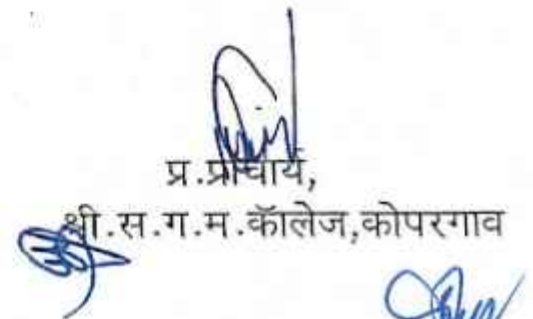 प्र.प्राचार्य,
श्री.स.ग.म.कॅालेज,कोपरगाव